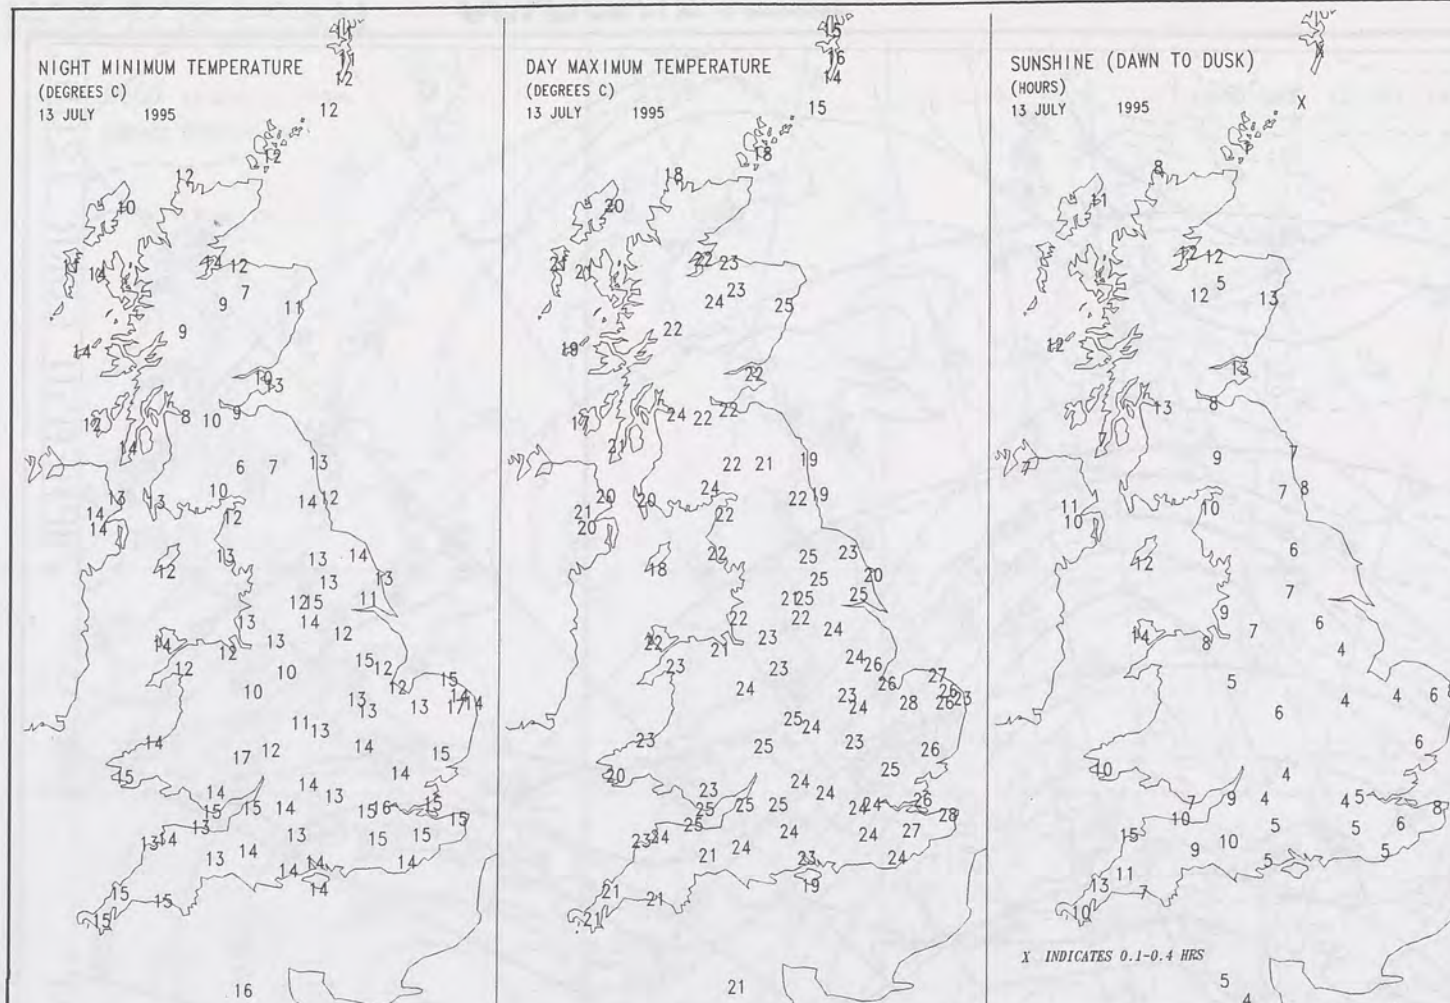 NIGHT MINIMUM TEMPERATURE
(DEGREES C)
13 JULY 1995
11
12
12
12
12
10
14
12
7
9
11
9
14
10
13
8
10
9
14
6
7
13
10
14
12
13
13
14
14
12
13
12
13
14
13
13
12
15
11
13
14
12
13
12
14
12
12
10
10
15
12
12
15
14
17
14
13
13
13
11
13
14
17
12
14
13
14
15
14
15
14
15
14
13
15
16
15
15
13
13
14
13
15
15
13
14
14
14
14
14
15
15
15
16
DAY MAXIMUM TEMPERATURE
(DEGREES C)
13 JULY 1995
15
16
14
15
18
18
20
21
20
22
23
23
24
25
22
19
22
24
22
22
21
22
21
19
24
20
20
22
19
21
20
22
22
18
25
23
25
20
21
25
25
22
22
24
22
21
23
23
23
24
24
26
26
27
23
24
28
26
26
23
25
24
23
23
25
26
20
23
24
24
25
25
25
25
24
24
26
28
25
23
24
24
24
27
21
24
23
24
19
21
21
21
21
SUNSHINE (DAWN TO DUSK)
(HOURS)
13 JULY 1995
X
X
8
11
12
12
5
12
13
12
13
13
8
7
7
9
7
7
8
11
10
10
12
6
7
9
7
6
14
8
4
5
6
4
4
6
8
6
10
4
7
9
4
4
5
8
10
15
9
10
5
5
6
5
5
13
11
7
10
X INDICATES 0.1-0.4 HRS
5
4